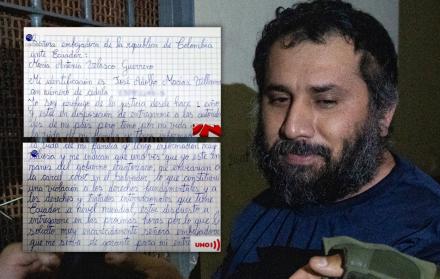 Doctora embajadora de la republica de Colombia
ante Ecuador:
María Antonia Velasco Guerrero
Mi identificación es José Adolfo Macías Villamar
con número de cédula
Yo soy prófugo de la justicia desde hace 1 año
y estoy en disposición de entregarme a las autorida-
des de mi país pero temo por mi vida y
la vida de mi familia y tengo información muy
valiosa y me indican que una vez que yo este en
manos del gobierno ecuatoriano, me enviarían a
la carcel cecot en el salvador, lo que constituiría
una violación a los derechos fundamentales y a
los derechos y tratados internacionales que tiene
Ecuador a nivel mundial, estoy dispuesto a
entregarme en las próximas horas por lo que le
solicito muy encarecidamente señora embajadora
que me sirva de garante para mi entre
UNO